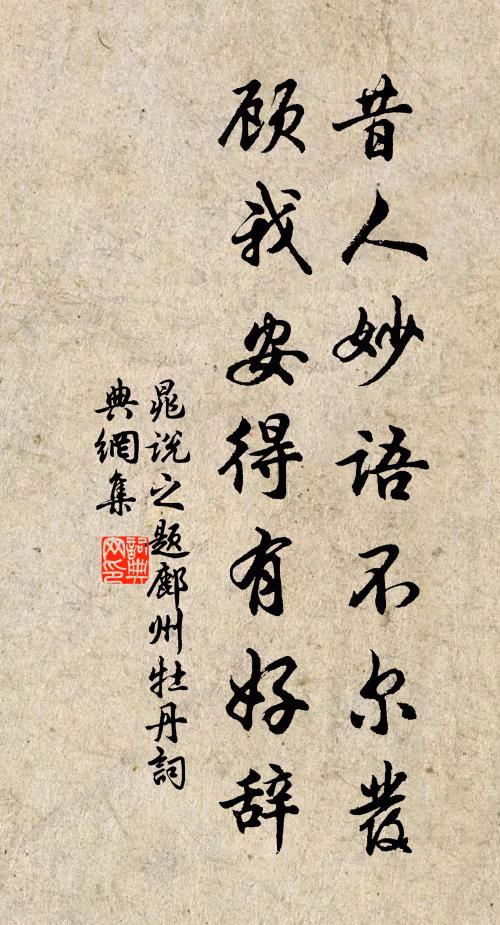 昔人妙语不尔發
顾我安得有好辞
晁说之题鄜州牡丹詞
典網集
詞典
网印